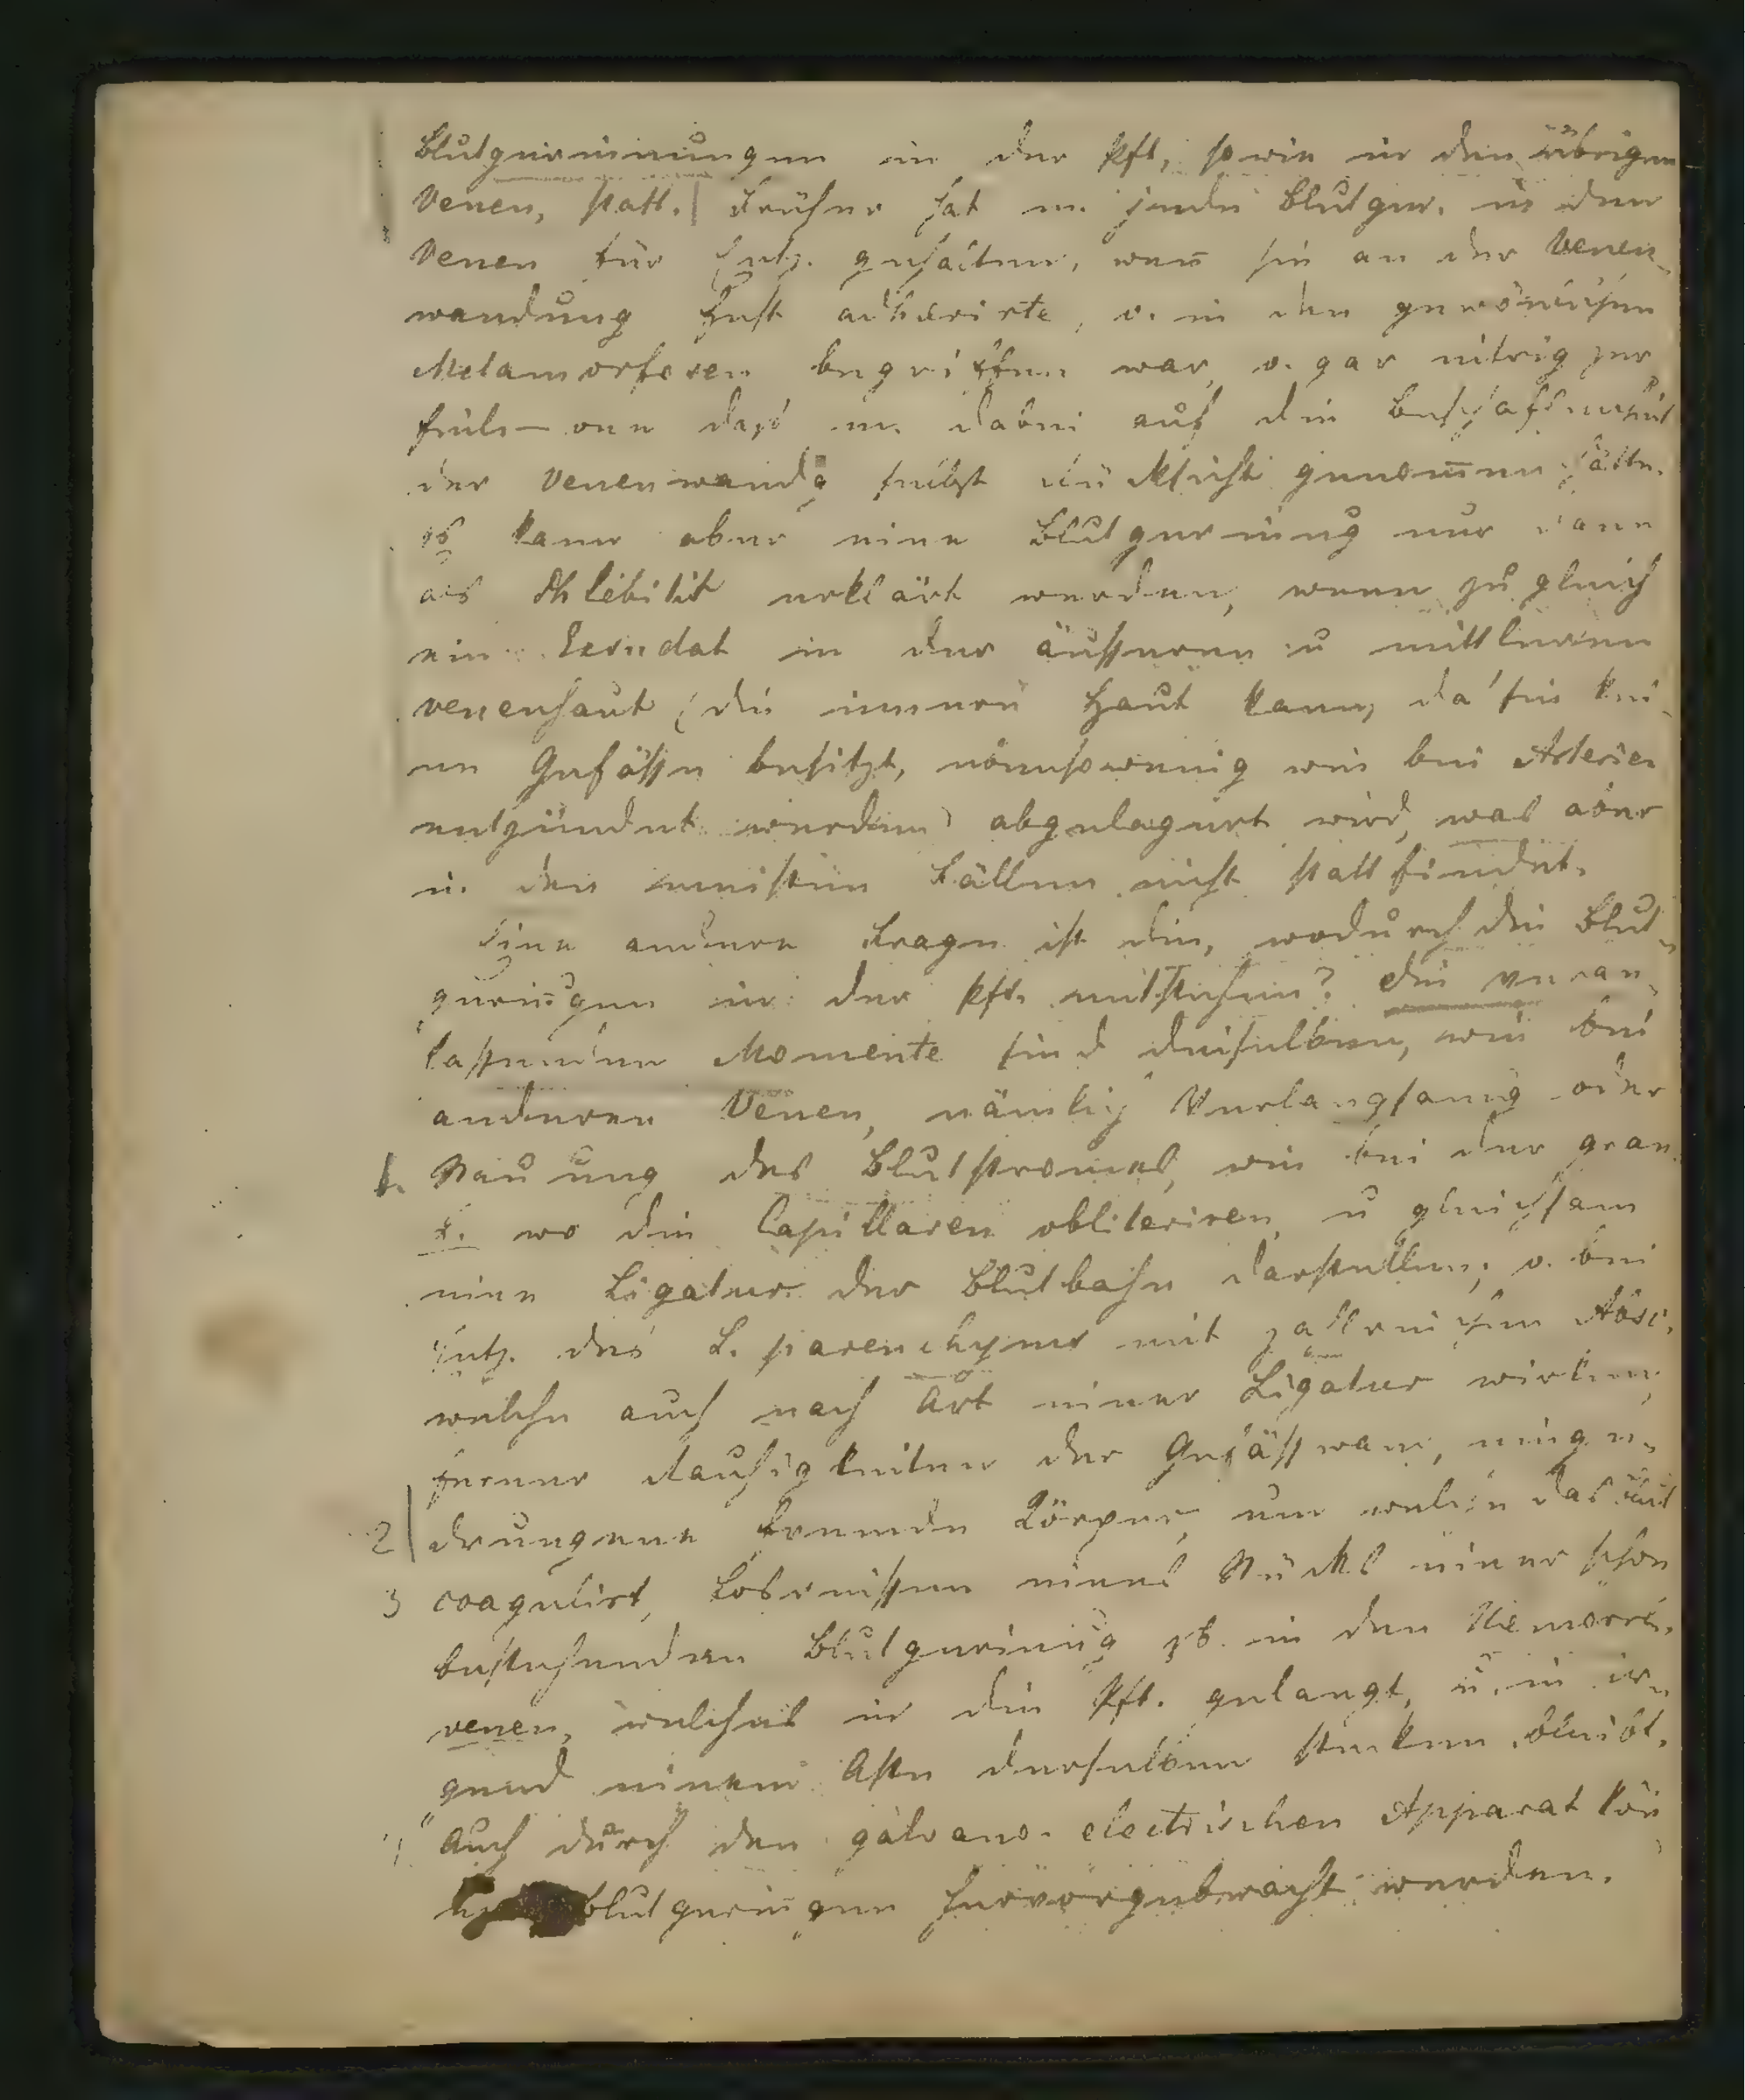 Blutgerinnungen in der Pft, sowie in den übrigen
Venen, statt. Früher hat m. jede Blutger. in den
Venen für Entz. gehalten, wenn sie an der Venen-
wandung fest adhærirte, o. in den gewönlichen
Metamorfosen begriffen war, o. gar eitrig zer
fiele – one daß m. dabei auf die Beschaffenheit
der Venenwandg selbst Rücksicht genom̄en hätte.
Es kann aber eine Blutgerinung nur dann
als Phlebitit erklärt werden, wenn zu gleich
ein Exsudat in der äusseren u mittleren
venenhaut (die innere Haut kann, da sie kei-
ne Gefässe besitzt, ebensowenig wie bei Arterien
entzündet werden) abgelagert wird, was aber
i. den meisten Fällen nicht stattfindet.
Eine andere Frage ist die, wodurch die Blut-
gerin̄gen in der Pft. entstehen? Die veran-
lassenden Momente sind dieselben, wie bei
anderen Venen, nämlich Verlangsamg oder
1. Stauung des Blutstromes, wie bei der gran.
L. wo die Capillaren obliteriren u gleichsam
eine Ligatur der Blutbahn darstellen; o. bei
Entz. des L. parenchyms mit zallreichen Absc.
welche auch nach Art einer Ligatur wirken;
ferner Rauhigkeiten der Gefässwand, einge-
2 drungene fremde Körper, um welche das Blut
3 coagulirt, Losreissen eines Stückes einer schon
bestehenden Blutgerinung zb. in den Hemorrh.
venen, welches in die Pft. gelangt, u. in ir-
gend einem Aste derselben stecken bleibt.
Auch durch den galvano-electrischen Apparat kön
Blutgerin̄gen hervorgebracht werden.